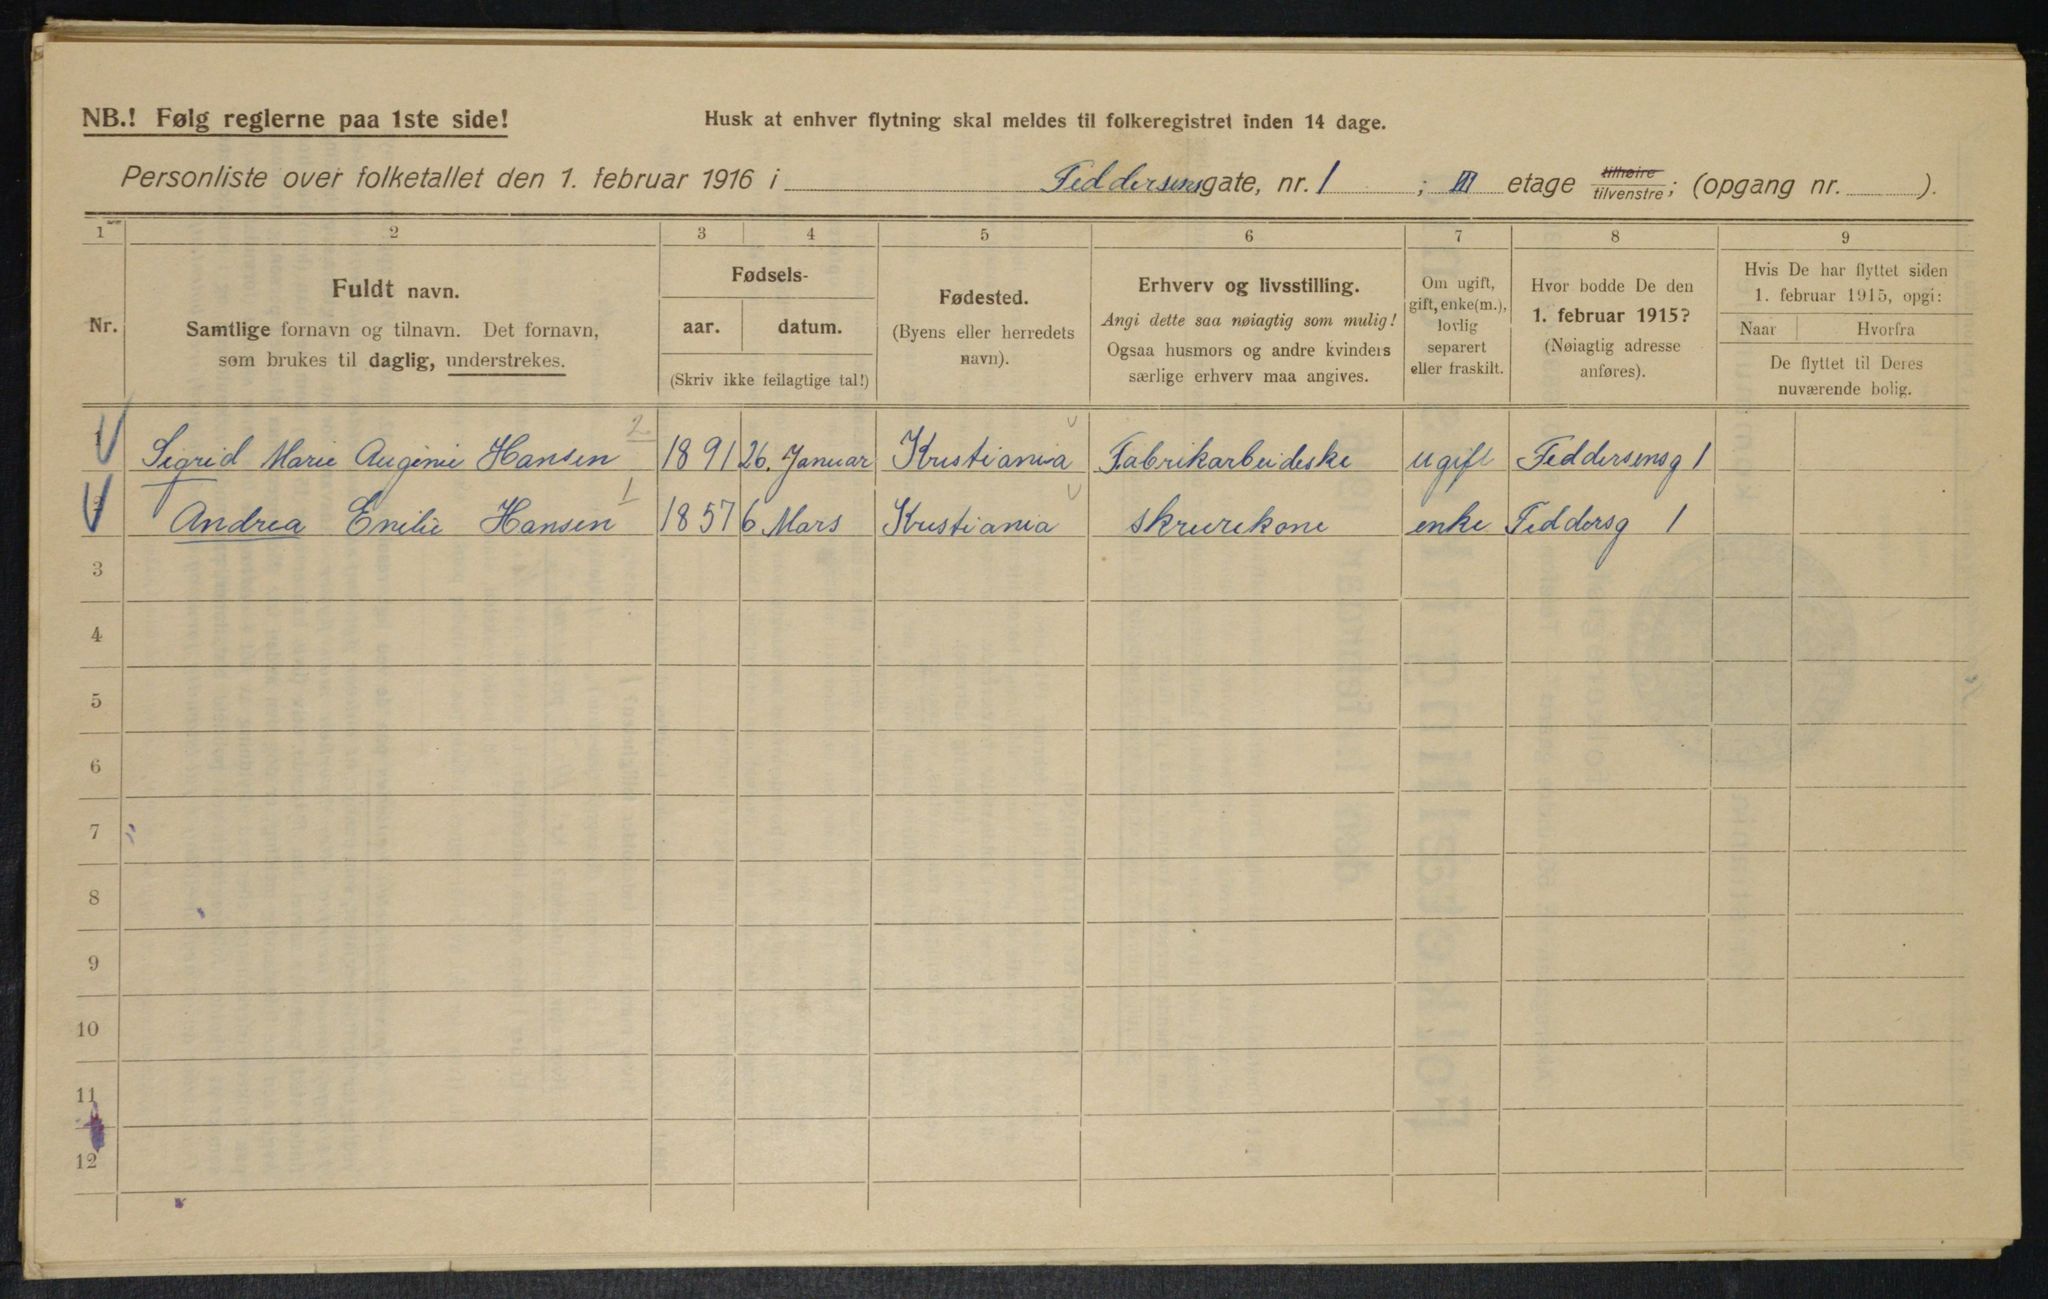 NB.! Følg reglerne paa 1ste side!
Husk at enhver flytning skal meldes til folkeregistret inden 14 dage.
Personliste over folketallet den 1. februar 1916 i Feddersensgate, nr. 1 ; III etage tilhøire/tilvenstre; (opgang nr. ).
1 2 3 4 5 6 7 8 9
Nr.
Fuldt navn.
Samtlige fornavn og tilnavn. Det fornavn,
som brukes til daglig, understrekes.
Fødsels-
aar. datum.
(Skriv ikke feilagtige tal!)
Fødested.
(Byens eller herredets
navn).
Erhverv og livsstilling.
Angi dette saa nøiagtig som mulig!
Ogsaa husmors og andre kvinders
særlige erhverv maa angives.
Om ugift,
gift, enke(m.),
lovlig
separert
eller fraskilt.
Hvor bodde De den
1. februar 1915?
(Nøiagtig adresse
anføres).
Hvis De har flyttet siden
1. februar 1915, opgi:
Naar Hvorfra
De flyttet til Deres
nuværende bolig.
1 Sigrid Marie Augenie Hansen 2 1891 26. Januar Kristiania Fabrikarbeideske ugift Feddersensg 1
2 Andrea Emilie Hansen 1 1857 6 Mars Kristiania skrurekone enke Feddersg 1
3
4
5
6
7
8
9
10
11
12